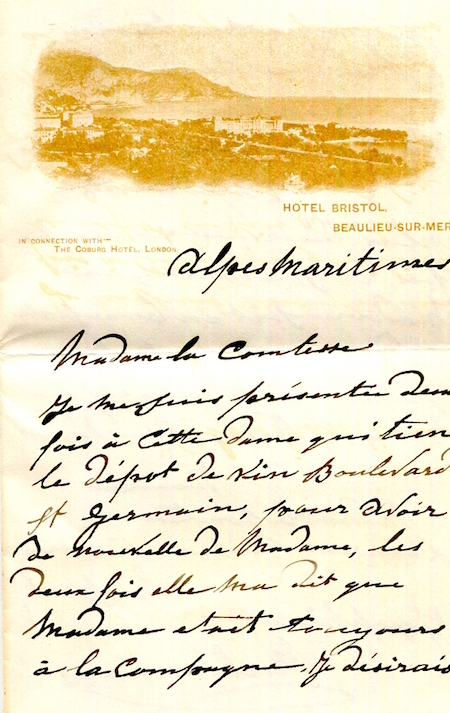 HOTEL BRISTOL,
BEAULIEU-SUR-MER
IN CONNECTION WITH
THE COBURG HOTEL, LONDON.
Alpes Maritimes
Madame la Comtesse
Je me suis présentée deux
fois à cette dame qui tien
le dépot de vin Boulevard
St Germain, pour avoir
de nouvelle de Madame, les
deux fois elle ma dit que
Madame etait toujours
à la Compagne. Je désirais